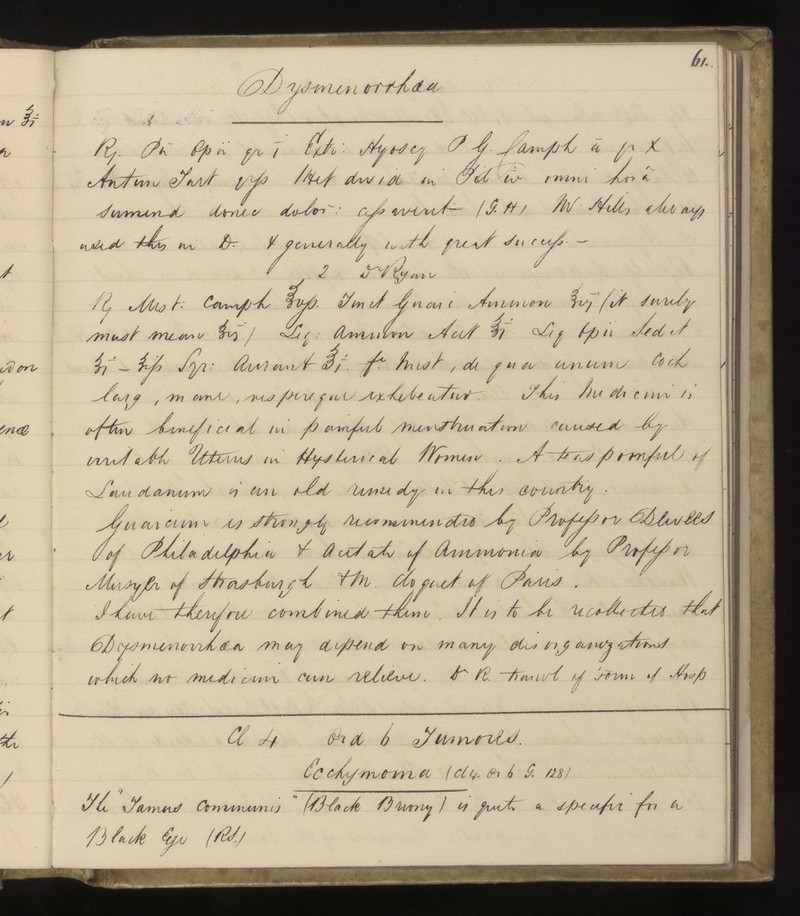 61.
Dysmenorrhœa
Rx. Pu Opii gr i Extr: Hyoscy P G. Camph ā gr x
Antim Tart grſs Met divid in Pil iv omni horā
sumend donec dolor: ceſsaverit (G.H) Mr Hills always
used this in D. & generally with great succeſs. —
2 Dr Ryan
Rx Mist: Camph ℥vſs. Tinct Guaic Ammon ℥ij (it surely
must mean ʒij) Liq: Ammon Acet ℥i Liq Opii Sed
ʒi — ʒiſs Syr: Aurant ℥i. ft Mist, de qua unum Coch
larg, mane, vesperque exhibeatur. This Medicine is
often beneficial in painful menstruation caused by
irritable Uterus in Hysterical Women. A teaspoonful of
Laudanum is an old remedy in this country.
Guaicum is strongly recommended by Profeſsor Dewees
of Philadelphia & Acetate of Ammonia by Profeſsor
of Strasburgh & M. Cloquet of Paris.
I have therefore combined them. It is to be recollected that
Dysmenorrhœa may depend on many disorganizations
which no medicine can relieve. Dr R. transl of Form of Hosp
Cl 4 Ord 6 Tumores.
Ecchymoma (Cl 4. Or 6 G. 128)
The "Tamus Communis" (Black Briony) is quite a specific for a
Black Eye (Rd.)